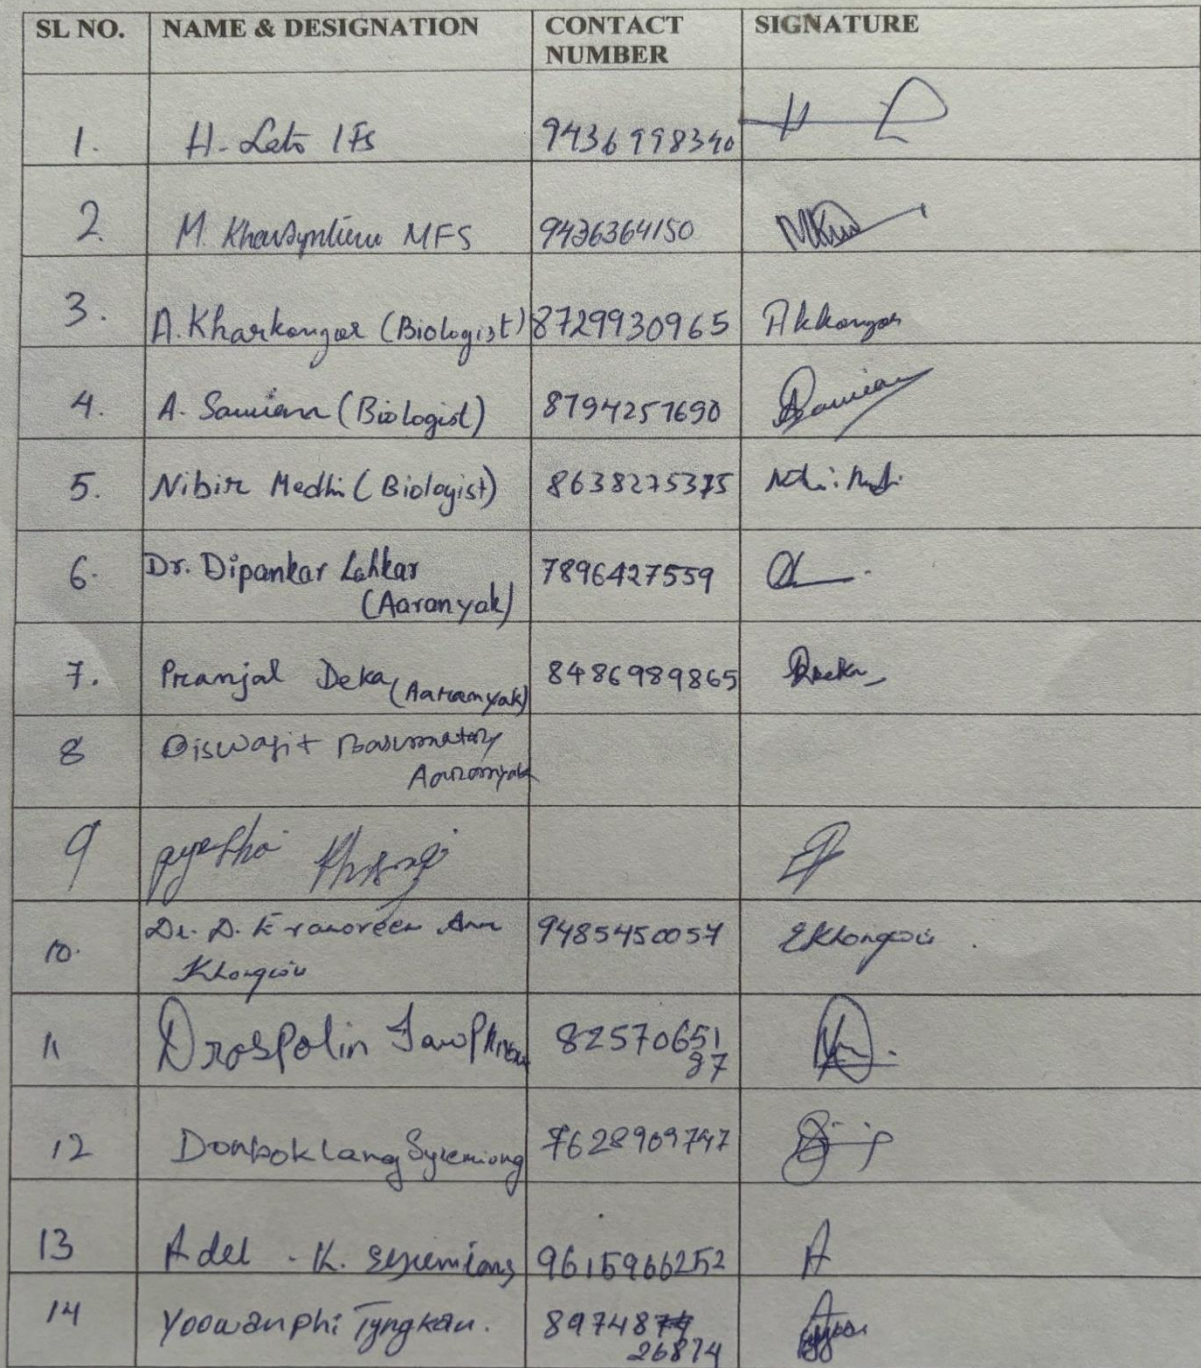 SL NO. NAME & DESIGNATION CONTACT NUMBER SIGNATURE
1. H. Lato IFS 9436998340
2. M. Kharsyntiew MFS 9436364150
3. A. Kharkongor (Biologist) 8729930965 Akkongor
4. A. Samian (Biologist) 8794257690
5. Nibir Medhi (Biologist) 8638275375
6. Dr. Dipankar Lahkar 7896427559
(Aaranyak)
7. Pranjal Deka (Aaranyak) 8486989865
8 Biswajit Basumatary
Aaranyak
9
10. Dr. D. Ann 9485450057
11 Drospolin 82570651
87
12 Donboklang Syiemiong 7628909747
13 Adel - K. Syiemiong 9615966252 A
14 Yoowanphi Tyngkan. 89748
26874